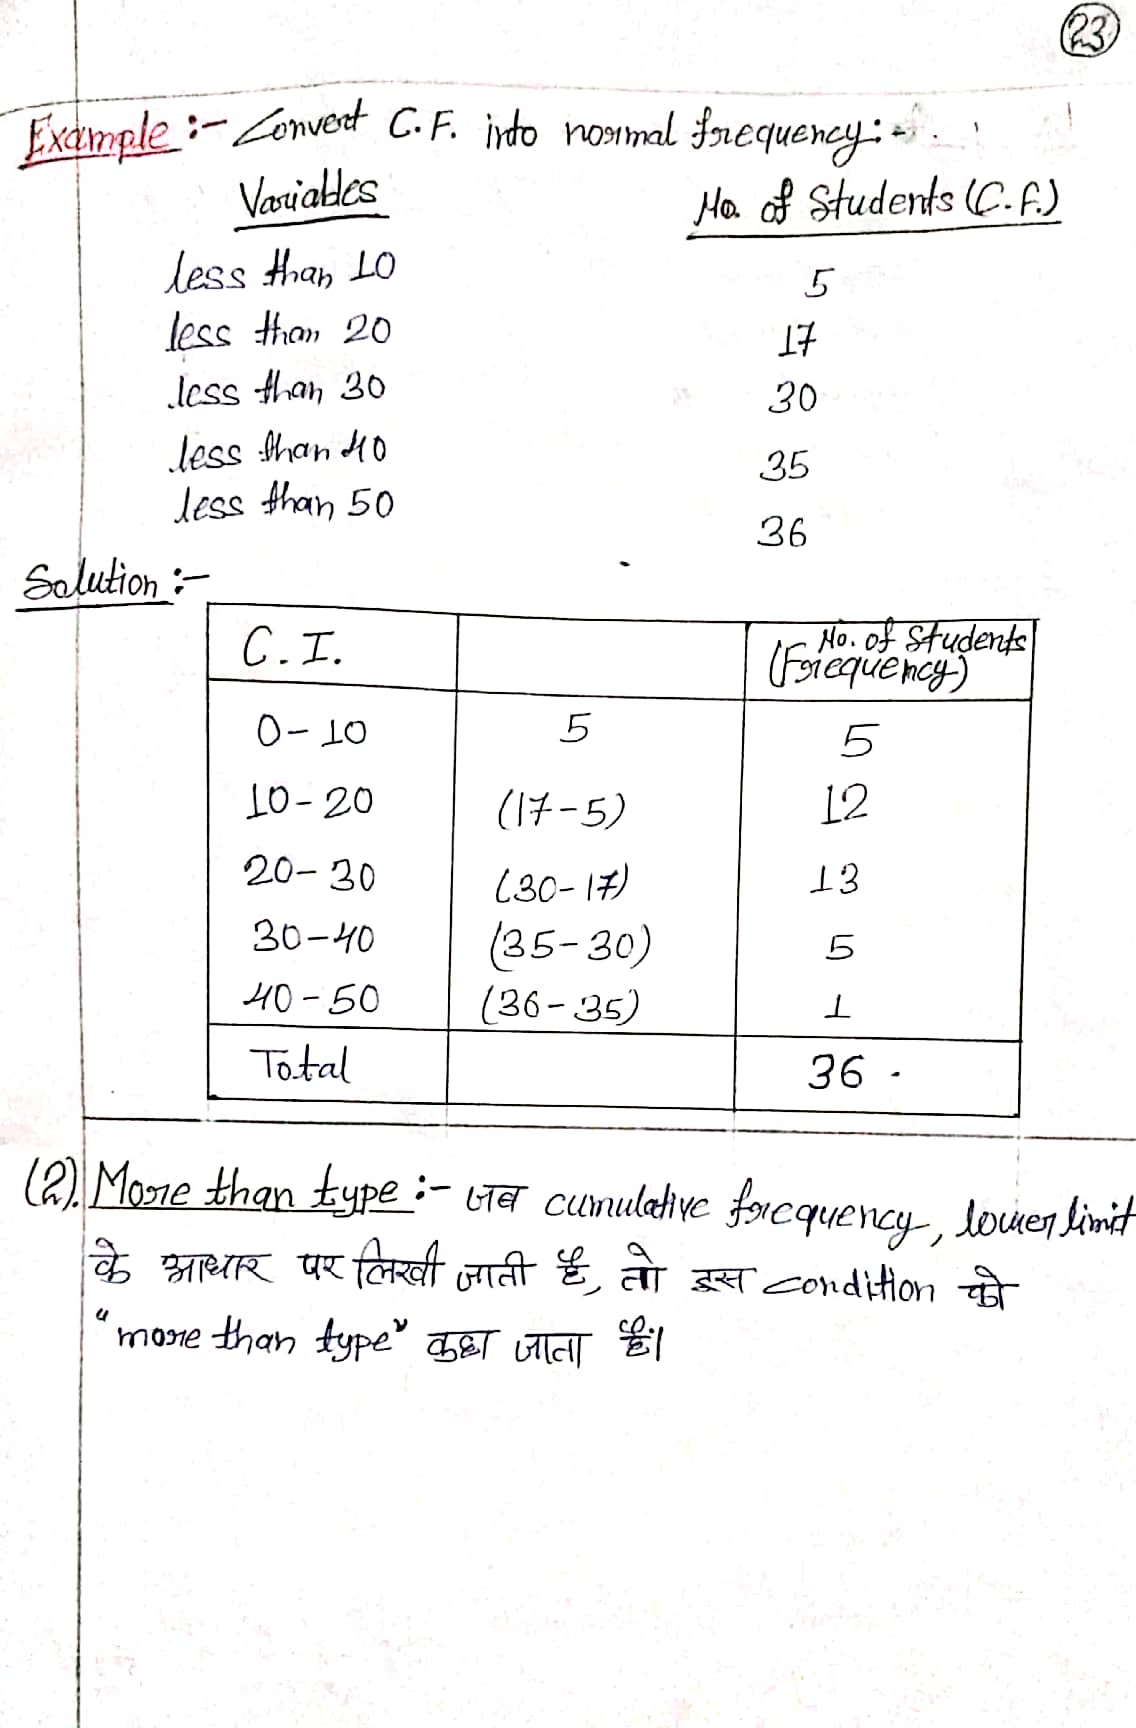 23
Example :- Convert C.F. into normal frequency :-
Variables No. of Students (C.F.)
less than 10 5
less than 20 17
less than 30 30
less than 40 35
less than 50 36
Solution :-
C.I. No. of Students (Frequency)
0-10 5 5
10-20 (17-5) 12
20-30 (30-17) 13
30-40 (35-30) 5
40-50 (36-35) 1
Total 36
(2). More than type :- जब cumulative frequency, lower limit
के आधार पर लिखी जाती है, तो इस condition को
"more than type" कहा जाता है।